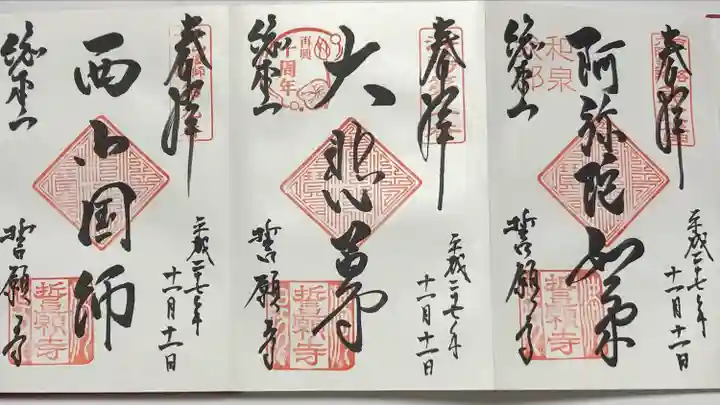 奉拝
平成二十七年
十一月十一日
阿弥陀如来
和泉
式部
総本山
誓願寺
誓願寺
奉拝
平成二十七年
十一月十一日
大悲
再興
十周年
総本山
誓願寺
誓願寺
奉拝
平成二十七年
十一月十一日
西山国師
総本山
誓願寺
誓願寺